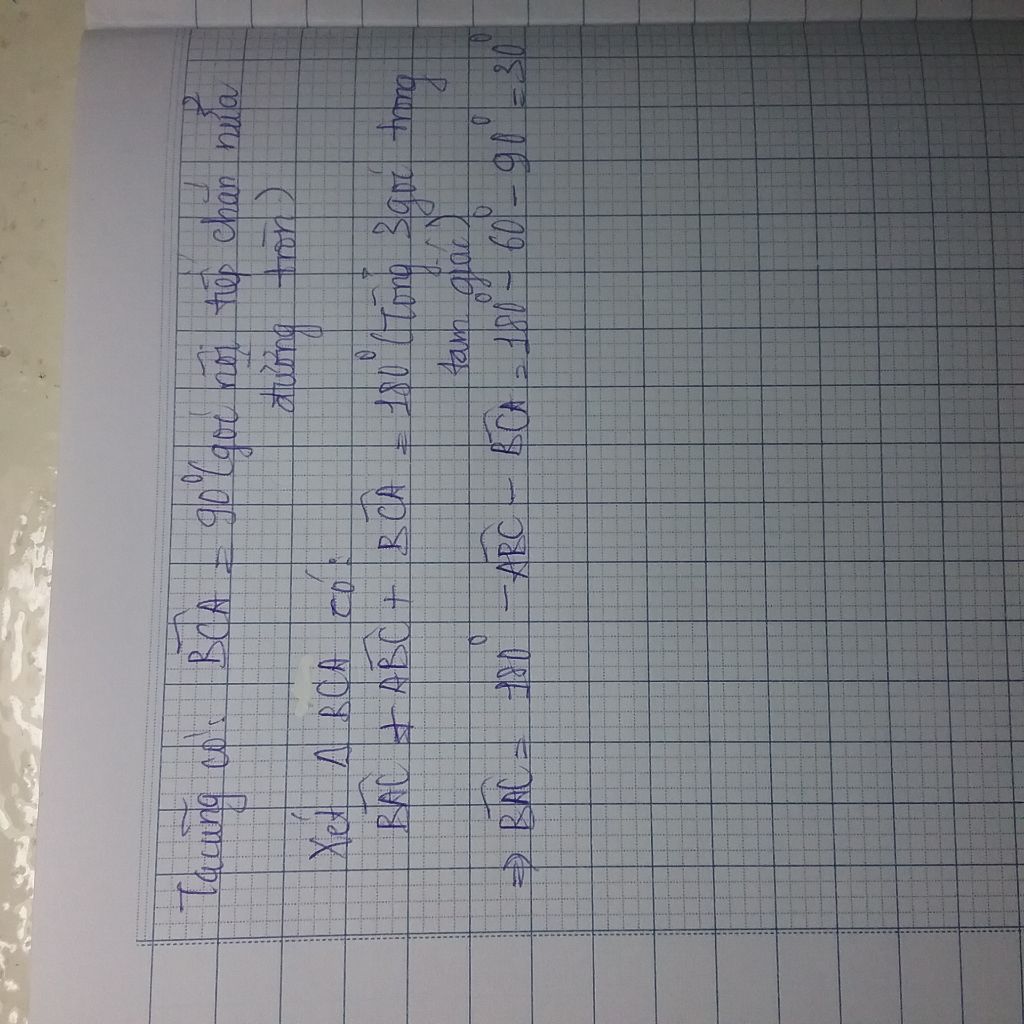 Ta cũng có: BCA = 90° (góc nội tiếp chắn nửa
đường tròn)
Xét Δ BCA có:
BAC + ABC + BCA = 180° (Tổng 3 góc trong
tam giác)
⇒ BAC = 180° - ABC - BCA = 180° - 60° - 90° = 30°